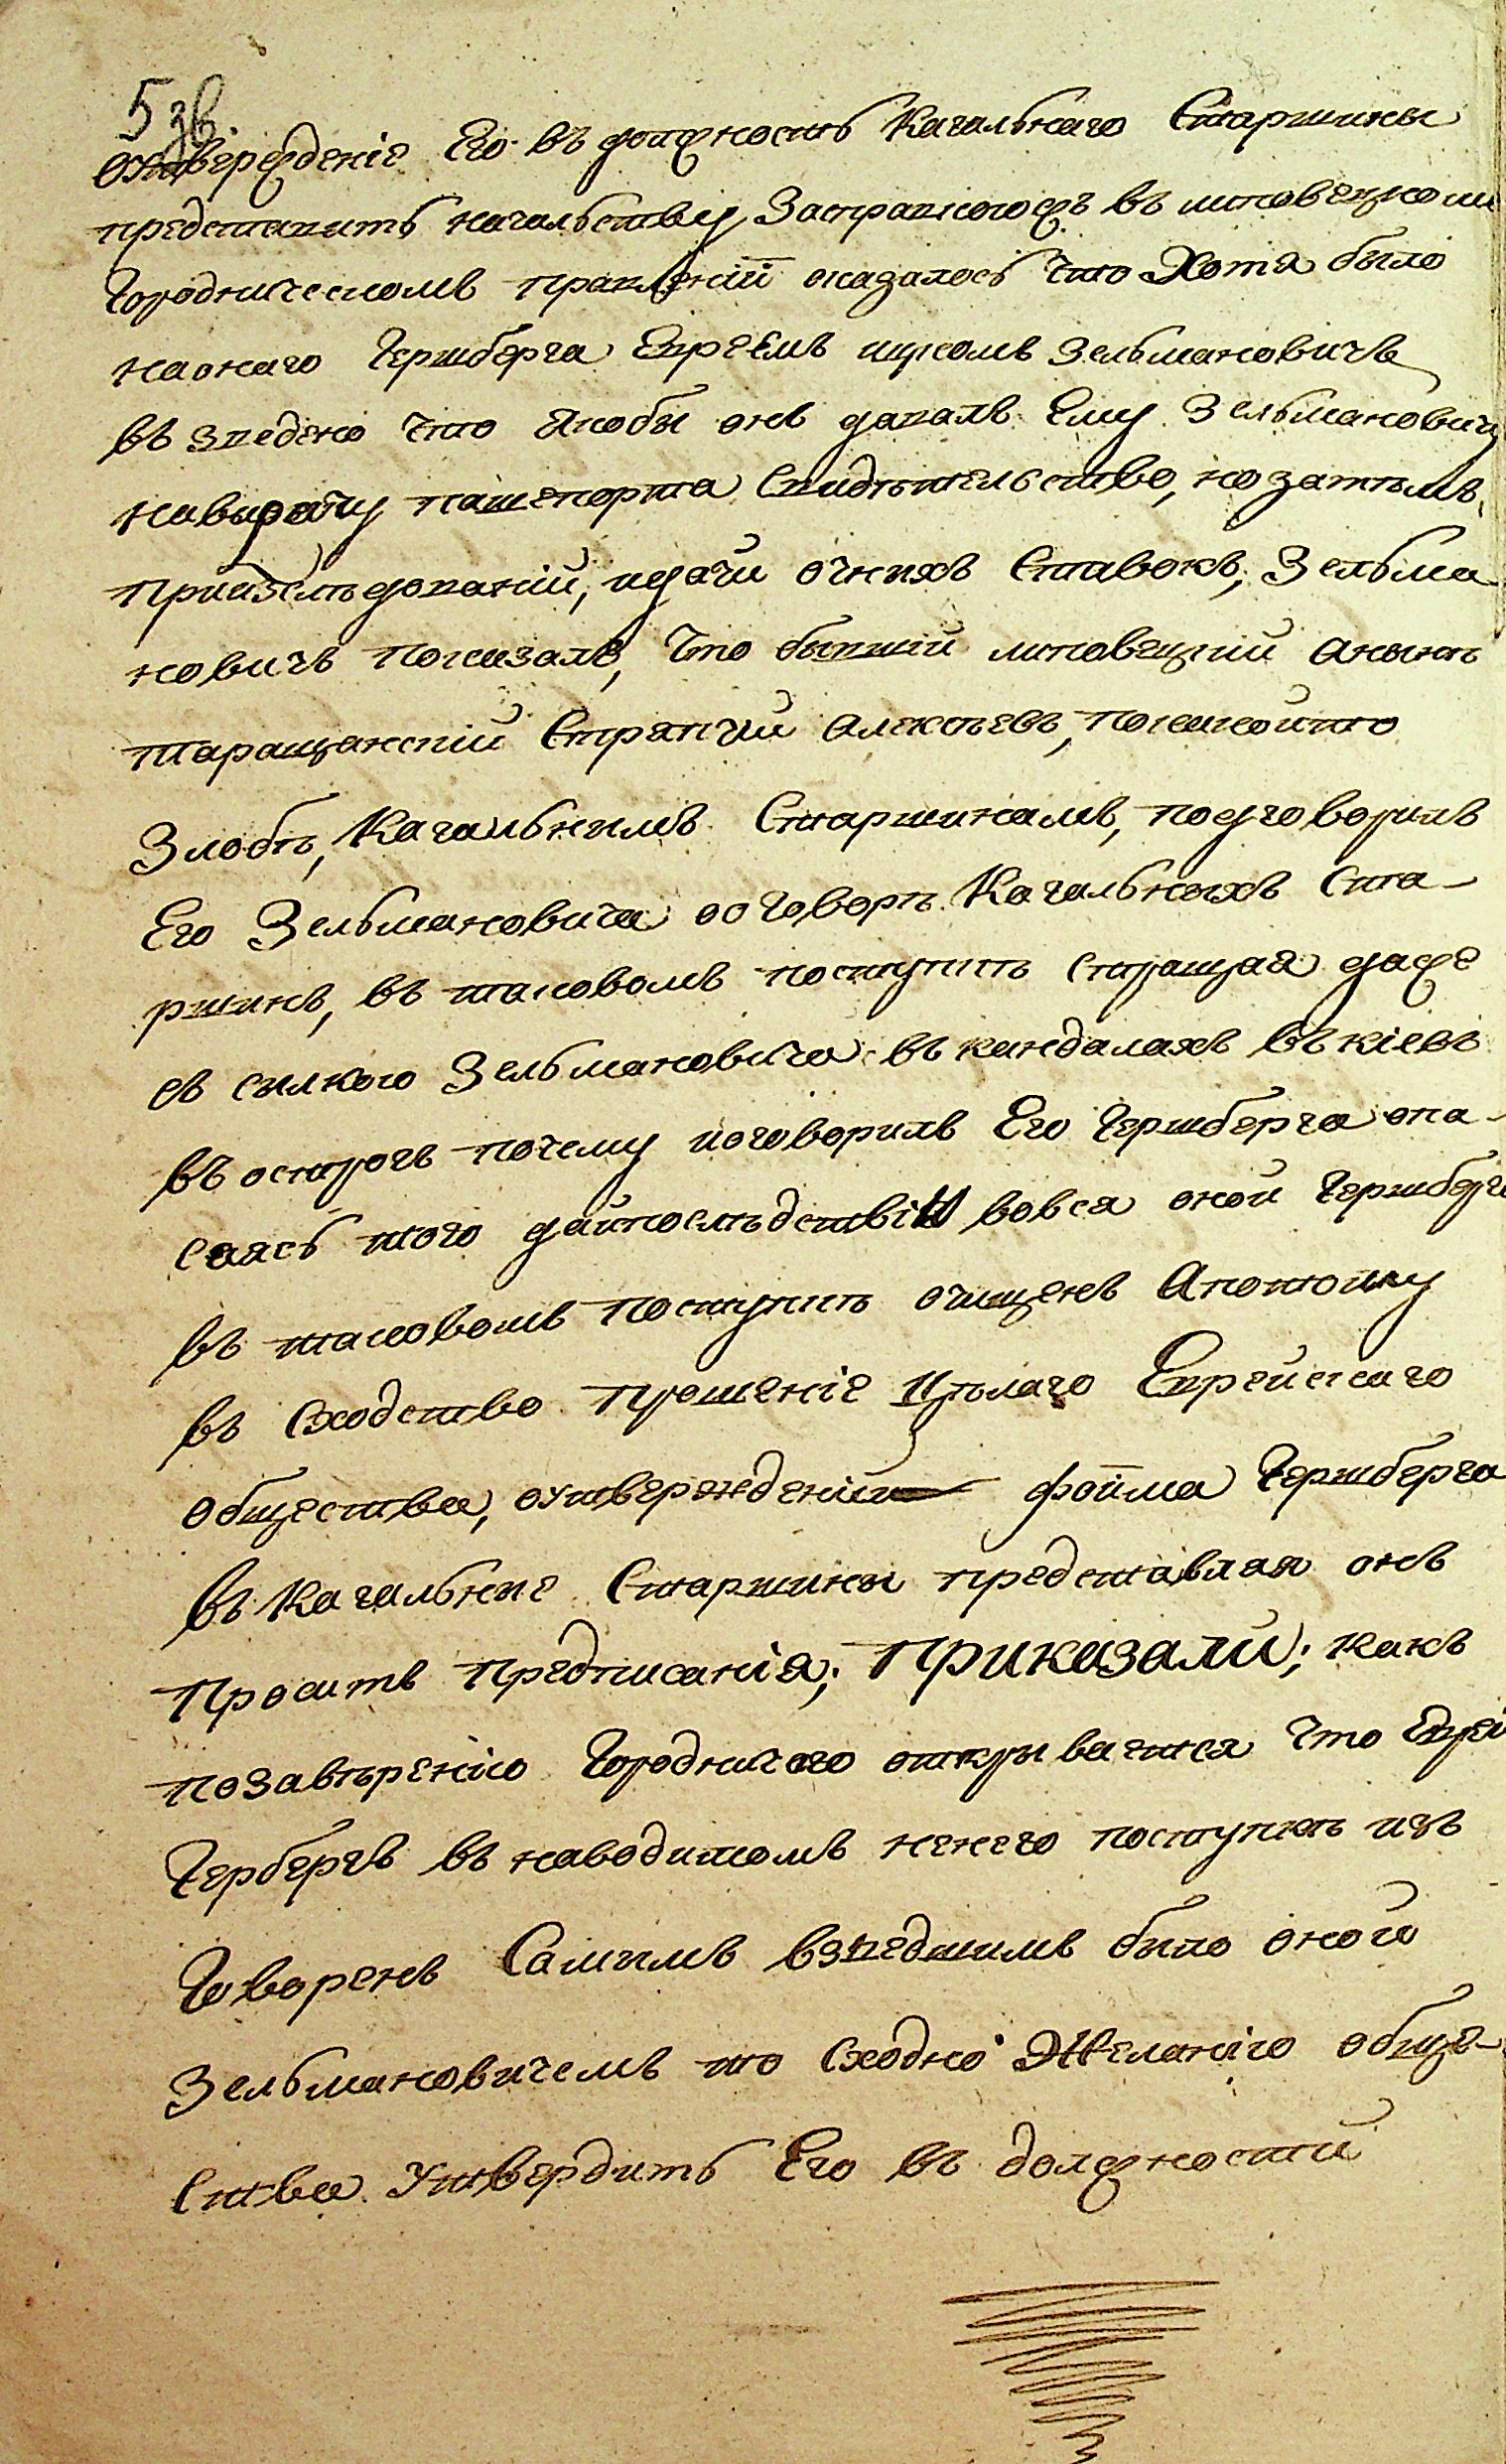 5 зв.
оутверждение Его въ должность Кагальнаго Старшины
представить начальству, Засправкоюжъ въ липовецкомъ
Городническомъ правлении оказалось что Хотя было
наонаго Гершберга Евреемъ ицкомъ Зельмановичемъ
въ зведено что якобы онъ давалъ Ему Зельмановичу
навыдачу пашепорта Свидѣтельство, но затѣмъ,
приизслѣдованіи, идачи очныхъ Ставокъ, Зельма
новичъ показалъ, что бывшій липовецкий анынѣ
таращанскій Стряпчій Алексѣевъ, покакойто
Злобѣ, Кагальнымъ Старшинамъ, подговорилъ
Его Зельмановича оговорѣ Кагальныхъ Ста-
ршинъ, въ таковомъ поступкѣ стращая даже
съ сылкою Зельмановича въ кандалахъ въ кіевъ
въ острогъ почему иоговорилъ Его Гершберга опа-
саясь того дайпослѣдствіи вовся оной Гершбергъ
въ таковомъ поступкѣ очищенъ Апотому
въ Сходство прошеніе Цѣлаго Еврейскаго
общества, оутверждении фоима Гершберга
въ Кагальные Старшины представляя онъ
Проситъ Предписанія; Приказали; какъ
позавѣренію Городничего открывается что Еврей
Гербергъ въ наводимомъ нанего поступкѣ изъ
Говоренъ Самимъ взведшимъ было оной
Зельмановичемъ то Сходно Желанію обще-
ства Утвердить Его въ должности